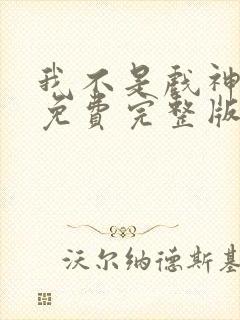 我不是戏神
免费完整版
沃尔纳德斯基